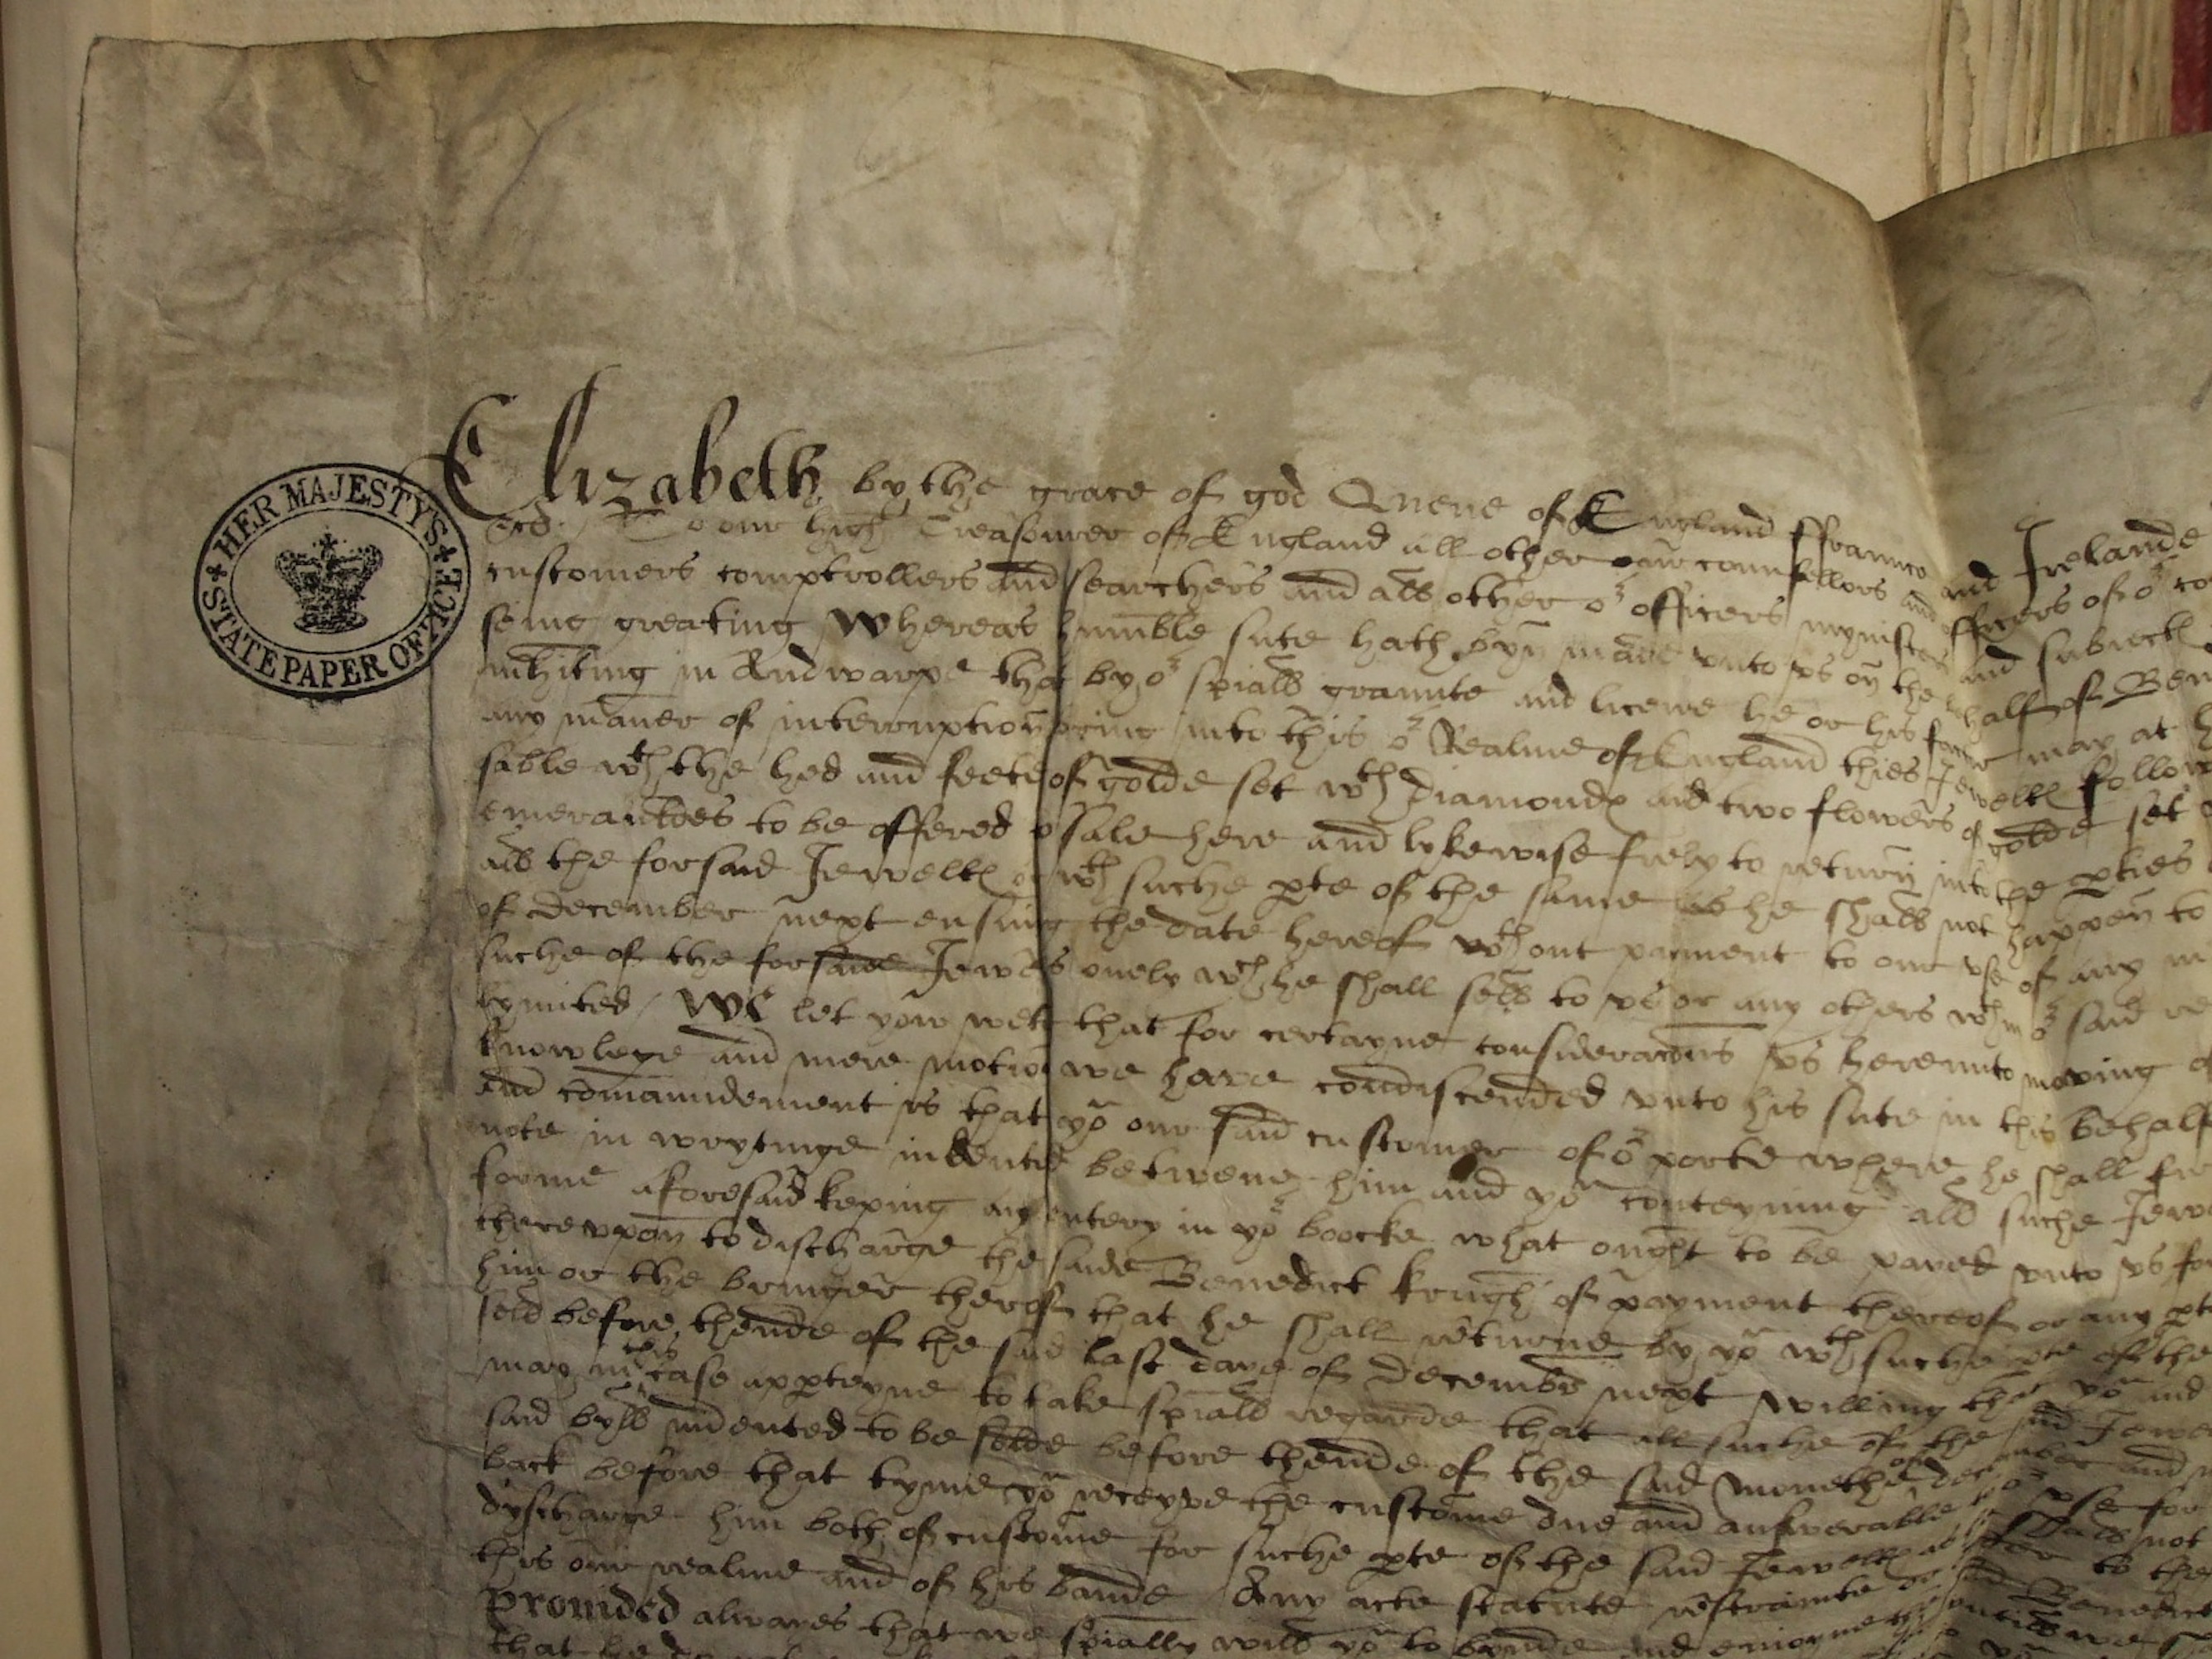 HER MAJESTY'S
STATE PAPER OFFICE
Elizabeth by the grace of god Quene of England ffraunce and Irelande
To our high Treasourer of England all other our counsellors and officers of oʳ
customers comptrollers and searchers and all other oʳ officers mynisters and subiectꝭ
seing greating Whereas humble sute hath byn made vnto vs on the behalf of Ben
inhiting in Andwarpe that by oʳ sp̄iall graunte and licence he or his factor may at
any maner of interruption bring into this oʳ Realme of England thies Jewellꝭ follow
sable wᵗʰ the hed and feete of golde set wᵗʰ Diamondꝭ and two flowers of golde set
emeraultes to be offered to sale here and lykewise frely to return into the p̱ties
all the forsaid Jewellꝭ or wᵗʰ suche p̱te of the same as he shall not happen to
of December next ensuing the date hereof wᵗʰout paiment to our vse of any
suche of the forsaide Jewels onely wᶜʰ he shall sell to vs or any others wᵗʰin oʳ said
lymited / We let yow wete that for certayne consideracōns vs herevnto moving
knowlege and mere motion we have condiscended vnto his sute in this behalf
and cōmaundement is that yoᵘ our said customer of oʳ porte where he shall
note in wrytinge indented betwene him and yoᵘ conteyning all suche Jew
forme aforesaid keping an entery in yoʳ boocke what ought to be payed vnto vs for
therevpon to discharge the saide Benedict krugh of payment thereof or any p̱te
him or the bringer therof that he shall returne by yoᵘ wᵗʰ suche p̱te of the
sold before thende of the said last daye of decembre next Willing that yoᵘ and
may in this case app̱teyne to take sp̄iall regarde that all suche of the said Jewe
said byll indented to be solde before thende of the said monethe of december and
back before that tyme yoᵘ receyve the custome due and answerable to oʳ vse for
dyscharge him both of custome for suche p̱te of the said Jewellꝭ as he shall not
this our realme and of his bande Any acte statute restrainte or to the
Prouided alwayes that we sp̄ially will yoᵘ to bynde and enioyne the said Benedict
that he